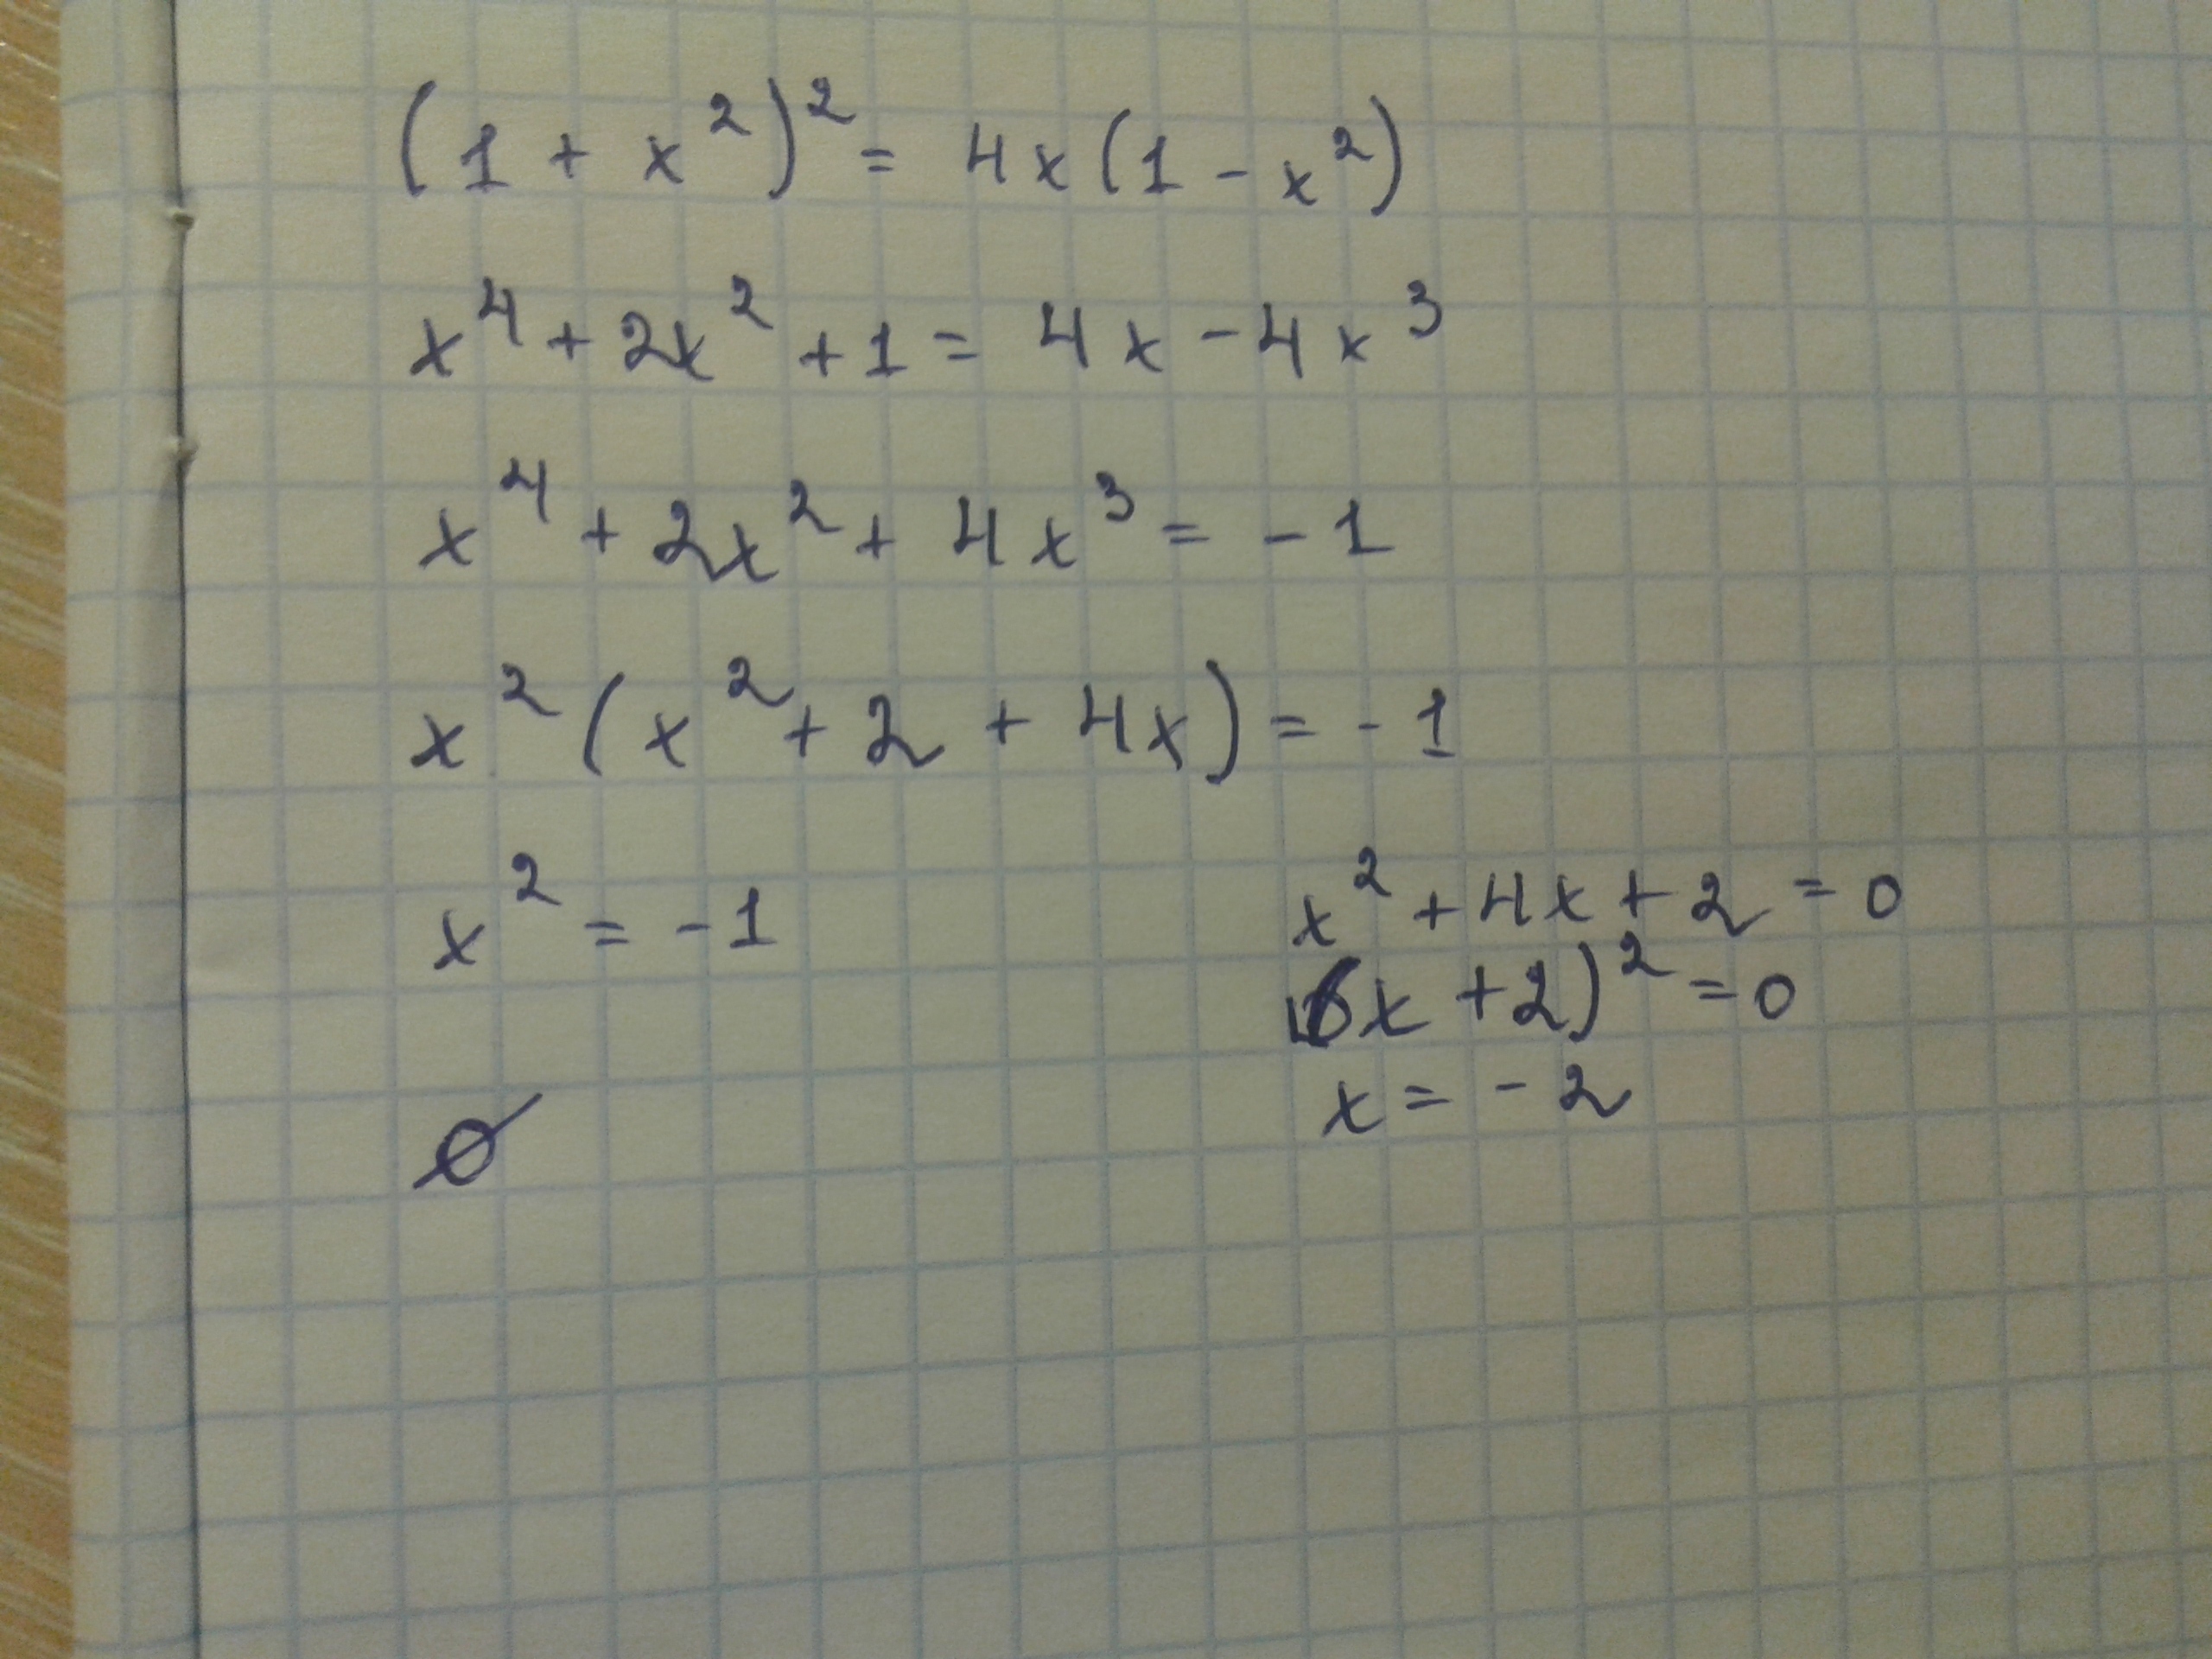 (1 + x²)² = 4x(1 - x²)
x⁴ + 2x² + 1 = 4x - 4x³
x⁴ + 2x² + 4x³ = - 1
x² (x² + 2 + 4x) = - 1
x² = - 1
∅
x² + 4x + 2 = 0
(x + 2)² = 0
x = - 2